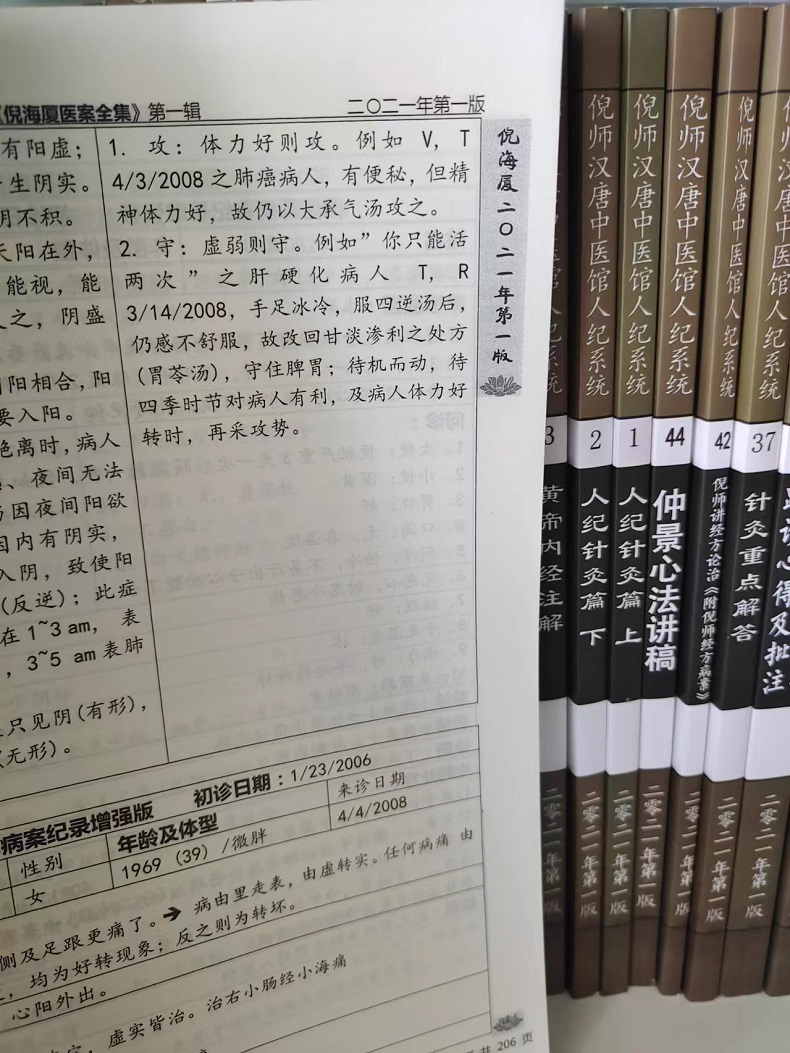 《倪海厦医案全集》第一辑
二〇二一年第一版
有阳虚；
生阴实。
阴不积。
天阳在外，
能视，能
之，阴盛
阴阳相合，阳
要入阳。
绝离时，病人
、夜间无法
因夜间阳欲
因内有阴实，
入阴，致使阳
(反逆)；此症
在1~3am，表
，3~5 am表肺
只见阴(有形)，
(无形)。
1. 攻：体力好则攻。例如 V, T
4/3/2008之肺癌病人，有便秘，但精
神体力好，故仍以大承气汤攻之。
2. 守：虚弱则守。例如”你只能活
两次”之肝硬化病人 T, R
3/14/2008，手足冰冷，服四逆汤后，
仍感不舒服，故改回甘淡渗利之处方
(胃苓汤)，守住脾胃；待机而动，待
四季时节对病人有利，及病人体力好
转时，再采攻势。
倪海厦二〇二一年第一版
病案纪录增强版
初诊日期：1/23/2006
性别
年龄及体型
来诊日期
女
1969 (39) /微胖
4/4/2008
侧及足跟更痛了。➔ 病由里走表，由虚转实。任何病痛 由
，均为好转现象；反之则为转坏。
心阳外出。
，虚实皆治。治右小肠经小海痛
共 206 页
3
黄帝内经注解
二零二一年第一版
倪师汉唐中医馆人纪系统
2
人纪针灸篇 下
二零二一年第一版
倪师汉唐中医馆人纪系统
1
人纪针灸篇 上
二零二一年第一版
倪师汉唐中医馆人纪系统
44
仲景心法讲稿
二零二一年第一版
倪师汉唐中医馆人纪系统
42
倪师讲经方论治《附倪师经方病案》
二零二一年第一版
倪师汉唐中医馆人纪系统
37
针灸重点解答
二零二一年第一版
倪师汉唐中医馆人纪系统
心得及批注